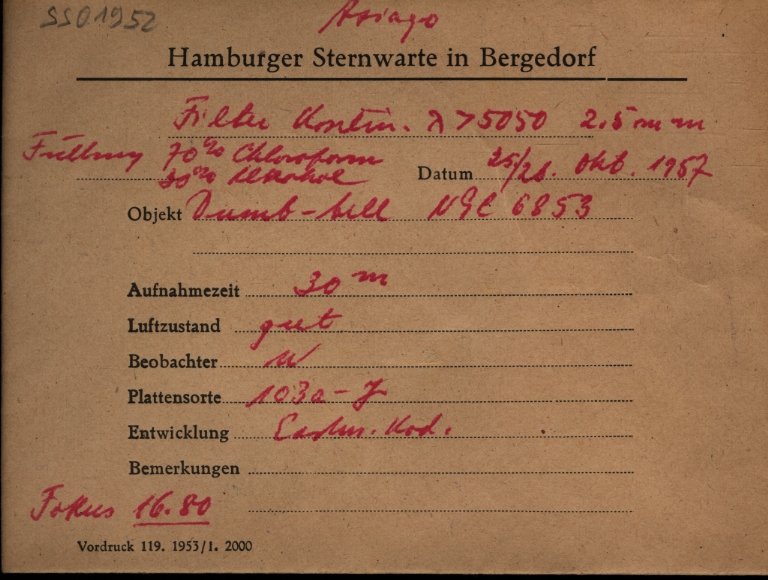 SSO1952
Asiago
Hamburger Sternwarte in Bergedorf
Filter Kontin. λ > 5050 2.5 mm
Füllung 70% Chloroform
30% Alkohol Datum 25/26. Okt. 1957
Objekt Dumb-bell NGC 6853
Aufnahmezeit 30 m
Luftzustand gut
Beobachter W
Plattensorte 103a-J
Entwicklung Eastm. Kod.
Bemerkungen
Fokus 16.80
Vordruck 119. 1953/I. 2000